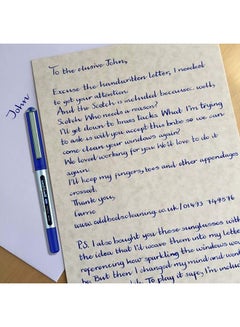 John
To the elusive John,
Excuse the handwritten letter, I needed
to get your attention.
And the Scotch is included because, well,
Scotch. Who needs a reason?
I'll get down to brass tacks. What I'm trying
to ask is will you accept this bribe so we can
come clean your windows again?
We loved working for you. We'll love to do it
again.
I'll keep my fingers, toes and other appendages
crossed.
Thank you,
P.S. I also bought you these sunglasses with
the idea that I'd weave them into my lette
referencing how sparkling the windows wou
be. But then I changed my mind and went
To play it safe, I'm inclu